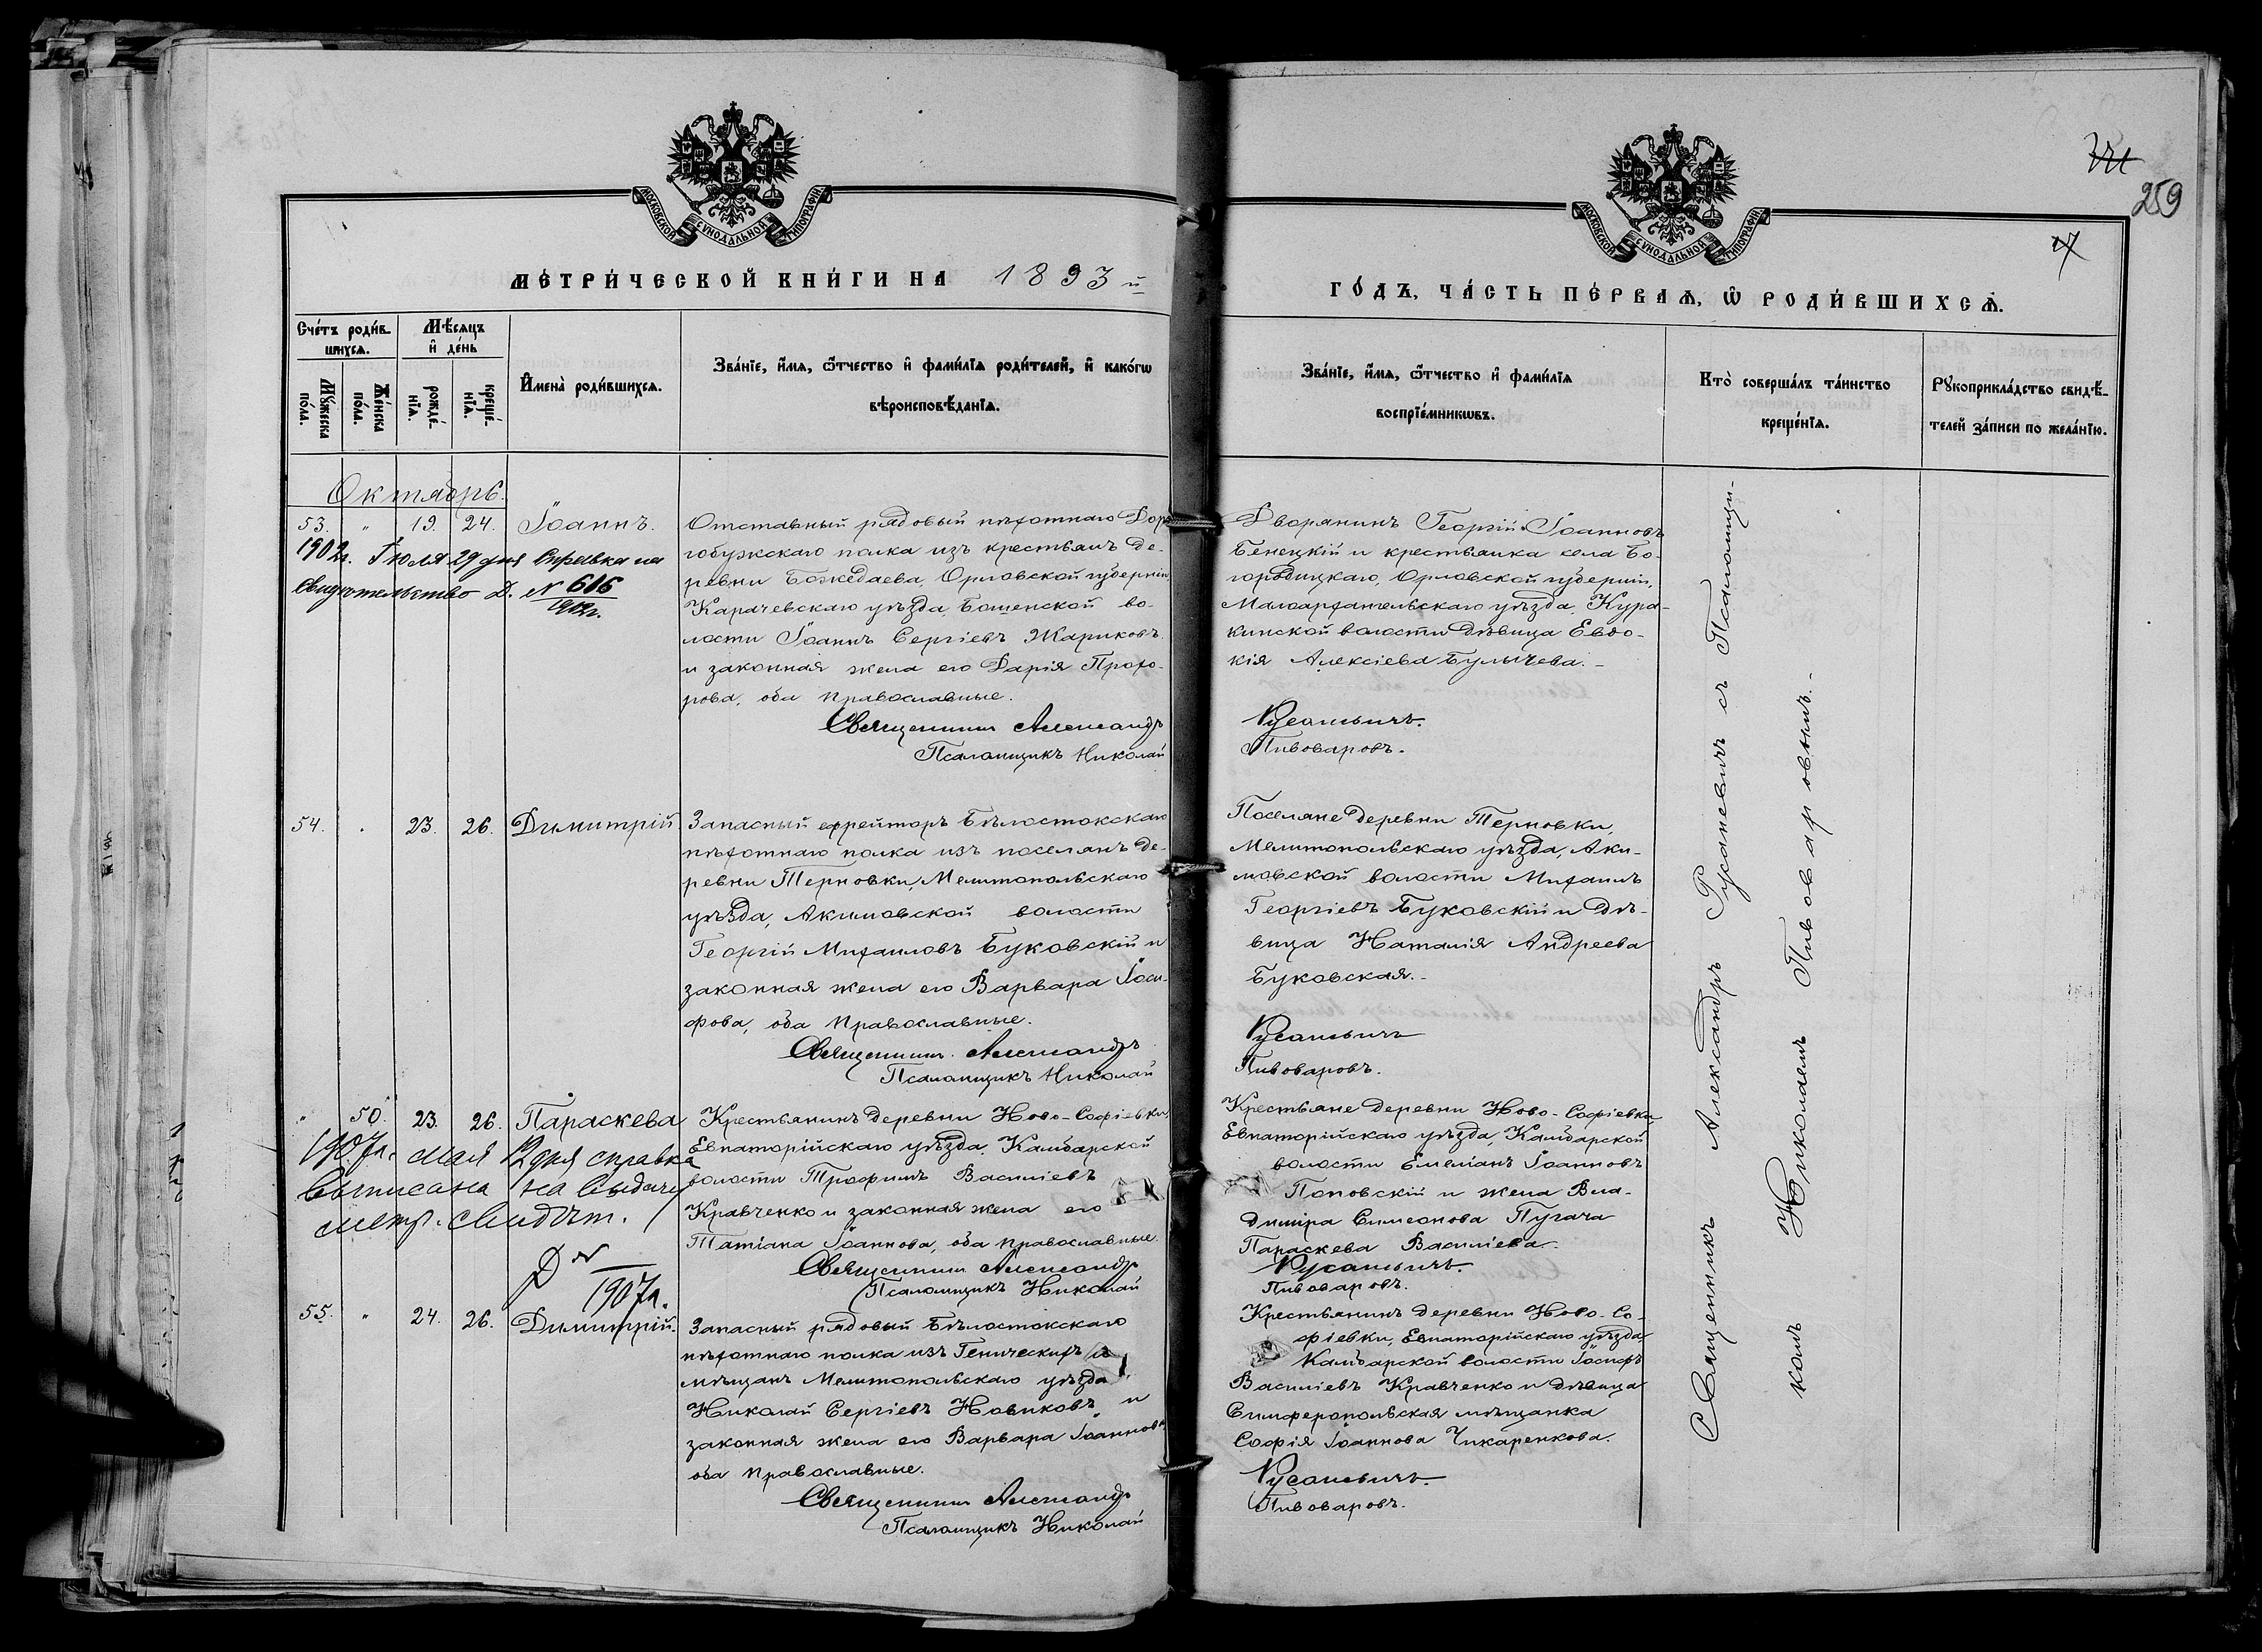 МОСКОВСКОЙ СУНОДАЛЬНОЙ ТИПОГРАФІИ
МЕТРИЧЕСКОЙ КНИГИ НА 1893 й
Счетъ родив-
шихся.
Мѣсяцъ
и день
Мужеска
пола.
Женска
пола.
рожде-
нія.
креще-
нія.
Имена родившихся.
Званіе, имя, отчество и фамилія родителей, и какогω
вѣроисповѣданія.
Октябрь.
53. " 19. 24. Іоаннъ.
1902г. Іюля 29 дня Справка на
свидѣтельство Д. № 616
1902г.
Отставный рядовый пѣхотнаго Доро-
гобужскаго полка изъ крестьянъ де-
ревни Божедаева, Орловской губерніи,
Карачевскаго уѣзда, Бошенской во-
лости Іоаннъ Сергіевъ Жариковъ
и законная жена его Дарія Прохо-
рова, оба православные.
Священникъ Александръ
Псаломщикъ Николай
54. " 23. 26. Димитрій
Запасный ефрейторъ Бѣлостокскаго
пѣхотнаго полка изъ поселянъ де-
ревни Терновки, Мелитопольскаго
уѣзда, Акимовской волости
Георгій Михаиловъ Буковскій и
законная жена его Варвара Іоси-
фова, оба православные.
Священникъ Александръ
Псаломщикъ Николай
" 50. 23. 26. Параскева
1907г. мая 12 дня справка
выписана на выдачу
метр. свидѣт.
Д №
1907г.
Крестьянинъ деревни Ново-Софіевки,
Евпаторійскаго уѣзда, Камбарской
волости Трофимъ Василіевъ
Кравченко и законная жена его
Татіана Іоаннова, оба православные.
Священникъ Александръ
Псаломщикъ Николай
55. " 24. 26. Димитрій.
Запасный рядовый Бѣлостокскаго
пѣхотнаго полка изъ Геническихъ
мѣщанъ Мелитопольскаго уѣзда
Николай Сергіевъ Новиковъ и
законная жена его Варвара Іоаннова,
оба православные.
Священникъ Александръ
Псаломщикъ Николай
259
МОСКОВСКОЙ СУНОДАЛЬНОЙ ТИПОГРАФІИ
ГОДЪ, ЧАСТЬ ПЕРВАЯ, Ѿ РОДИВШИХСЯ.
Званіе, имя, отчество и фамилія
воспріемникωвъ.
Кто совершалъ таинство
крещенія.
Рукоприкладство свидѣ-
телей записи по желанію.
Дворянинъ Георгій Іоанновъ
Бенецкій и крестьянка села Бо-
городицкаго, Орловской губерніи,
Малоархангельскаго уѣзда, Кура-
кинской волости дѣвица Евдо-
кія Алексіева Булычева.-
Русаневичъ.
Пивоваровъ.
Поселяне деревни Терновки,
Мелитопольскаго уѣзда, Аки-
мовской волости Михаилъ
Георгіевъ Буковскій и дѣ-
вица Наталія Андреева
Буковская.-
Русаневичъ
Пивоваровъ.
Крестьяне деревни Ново-Софіевки,
Евпаторійскаго уѣзда, Камбарской
волости Емеліанъ Іоанновъ
Поповскій и жена Вла-
диміра Симеонова Пугача
Параскева Василіева.-
Русаневичъ.
Пивоваровъ.
Крестьянинъ деревни Ново-Со-
фіевки, Евпаторійскаго уѣзда
Камбарской волости Іосифъ
Василіевъ Кравченко и дѣвица
Симферопольская мѣщанка
Софія Іоаннова Чикаренкова.
Русаневичъ.
Пивоваровъ.
Священникъ Александръ Русаневичъ съ Псаломщи-
комъ Николаемъ Пивоваровымъ.-